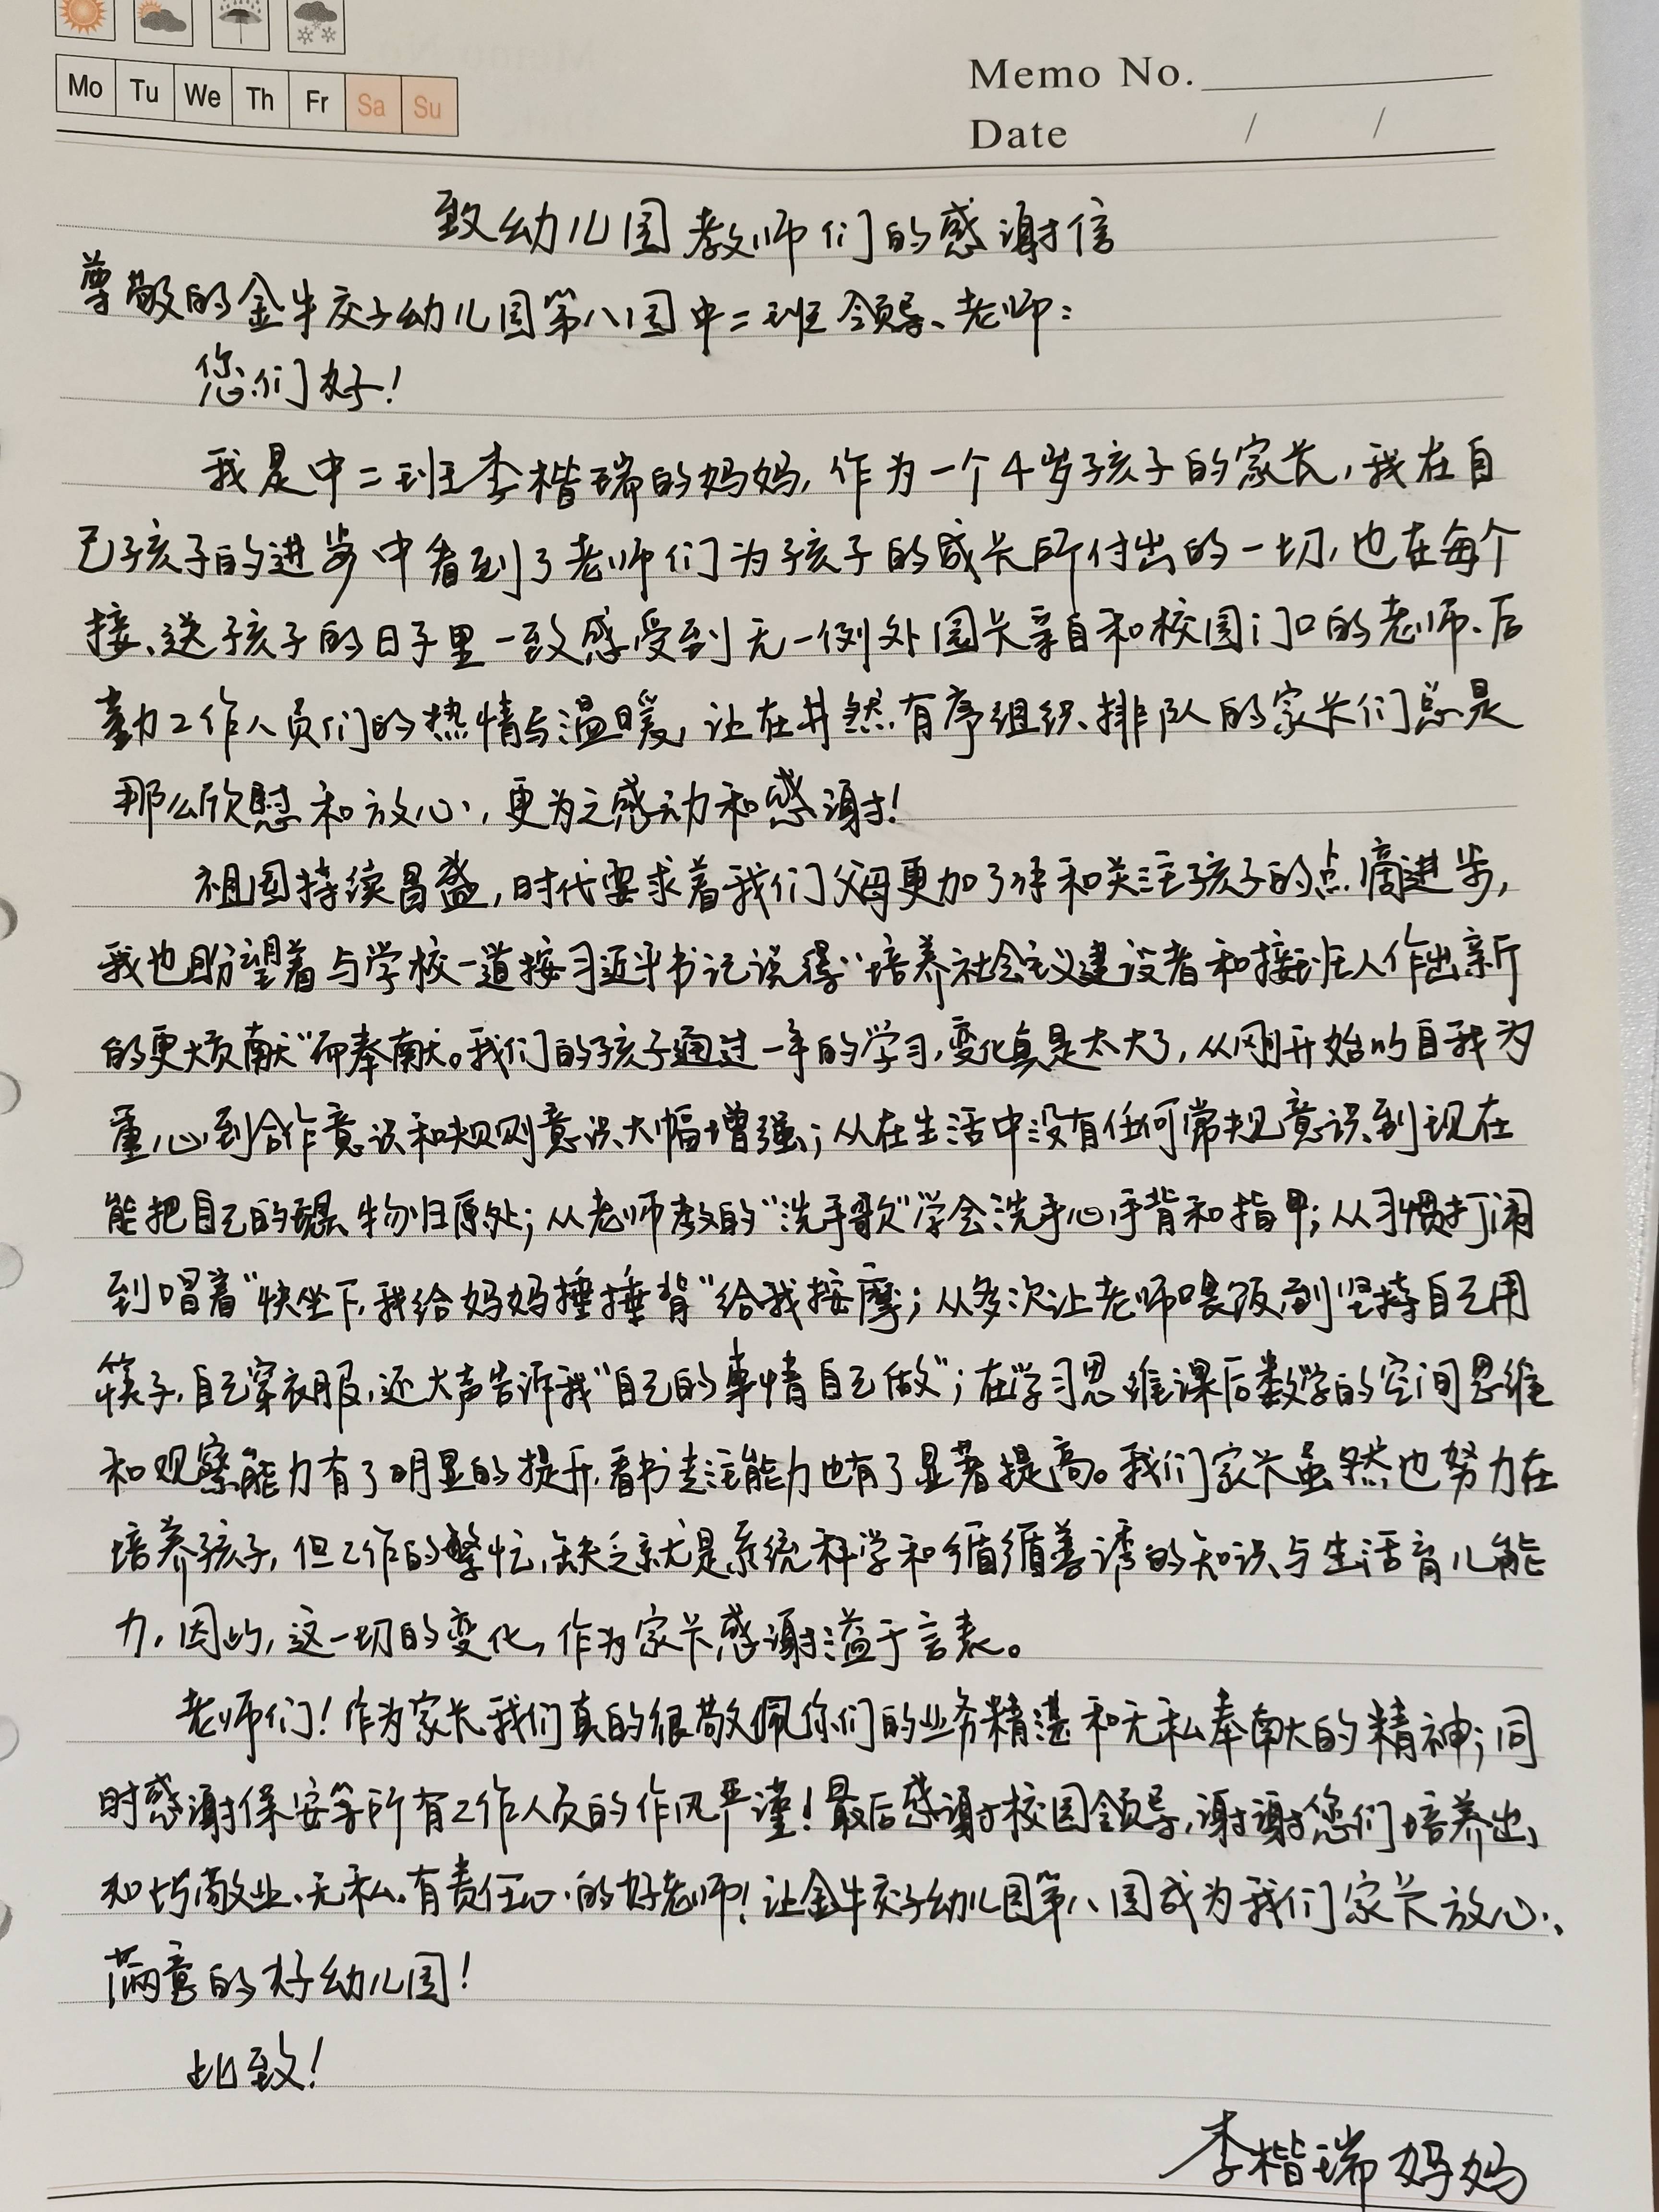 Mo Tu We Th Fr Sa Su
Memo No.
Date / /
致幼儿园教师们的感谢信
尊敬的金牛交子幼儿园第八园中二班领导、老师：
您们好！
我是中二班李楷瑞的妈妈，作为一个4岁孩子的家长，我在自
己孩子的进步中看到了老师们为孩子的成长所付出的一切，也在每个
接、送孩子的日子里一致感受到无一例外园长亲自和校园门口的老师、后
勤工作人员们的热情与温暖，让在井然有序组织、排队的家长们总是
那么欣慰和放心，更为之感动和感谢！
祖国持续昌盛，时代要求着我们父母更加了解和关注孩子的点滴进步，
我也盼望着与学校一道按习近平书记说得“培养社会主义建设者和接班人作出新
的更大贡献”而奉献。我们的孩子通过一年的学习，变化真是太大了，从刚开始的自我为
重心到合作意识和规则意识大幅增强；从在生活中没有任何常规意识到现在
能把自己的物归原处；从老师教的“洗手歌”学会洗手心手背和指甲；从习惯打闹
到唱着“快坐下，我给妈妈捶捶背”给我按摩；从多次让老师喂饭到坚持自己用
筷子，自己穿衣服，还大声告诉我“自己的事情自己做”；在学习思维课后数学的空间思维
和观察能力有了明显的提升，看书专注能力也有了显著提高。我们家长虽然也努力在
培养孩子，但工作的繁忙，缺乏就是系统科学和循循善诱的知识与生活育儿能
力，因此，这一切的变化，作为家长感谢溢于言表。
老师们！作为家长我们真的很敬佩你们的业务精湛和无私奉献的精神；同
时感谢保安等所有工作人员的作风严谨！最后感谢校园领导，谢谢您们培养出
和均敬业、无私、有责任心的好老师！让金牛交子幼儿园第八园成为我们家长放心、
满意的好幼儿园！
此致！
李楷瑞妈妈